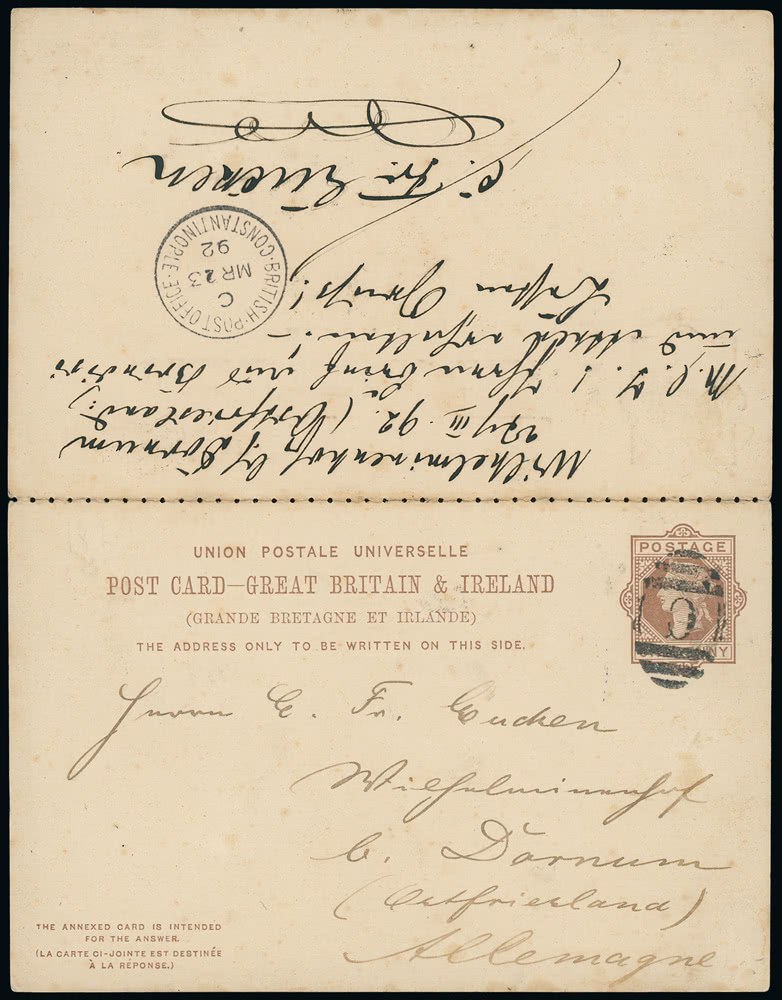 Wilhelminenhof b/ Dornum
27/III. 92. (Ostfriesland:)
M. l. F.! Ihren Brief und
und erhalten! –
Besten Gruß!
C. Fr. Eucken
BRITISH·POST OFFICE·CONSTANTINOPLE·
C
MR 23
92
UNION POSTALE UNIVERSELLE
POST CARD—GREAT BRITAIN & IRELAND
(GRANDE BRETAGNE ET IRLANDE)
THE ADDRESS ONLY TO BE WRITTEN ON THIS SIDE.
POSTAGE
PENNY
Herrn C. Fr. Eucken
Wilhelminenhof
b. Dornum
(Ostfriesland)
Allemagne
THE ANNEXED CARD IS INTENDED
FOR THE ANSWER.
(LA CARTE CI-JOINTE EST DESTINÉE
À LA RÉPONSE.)